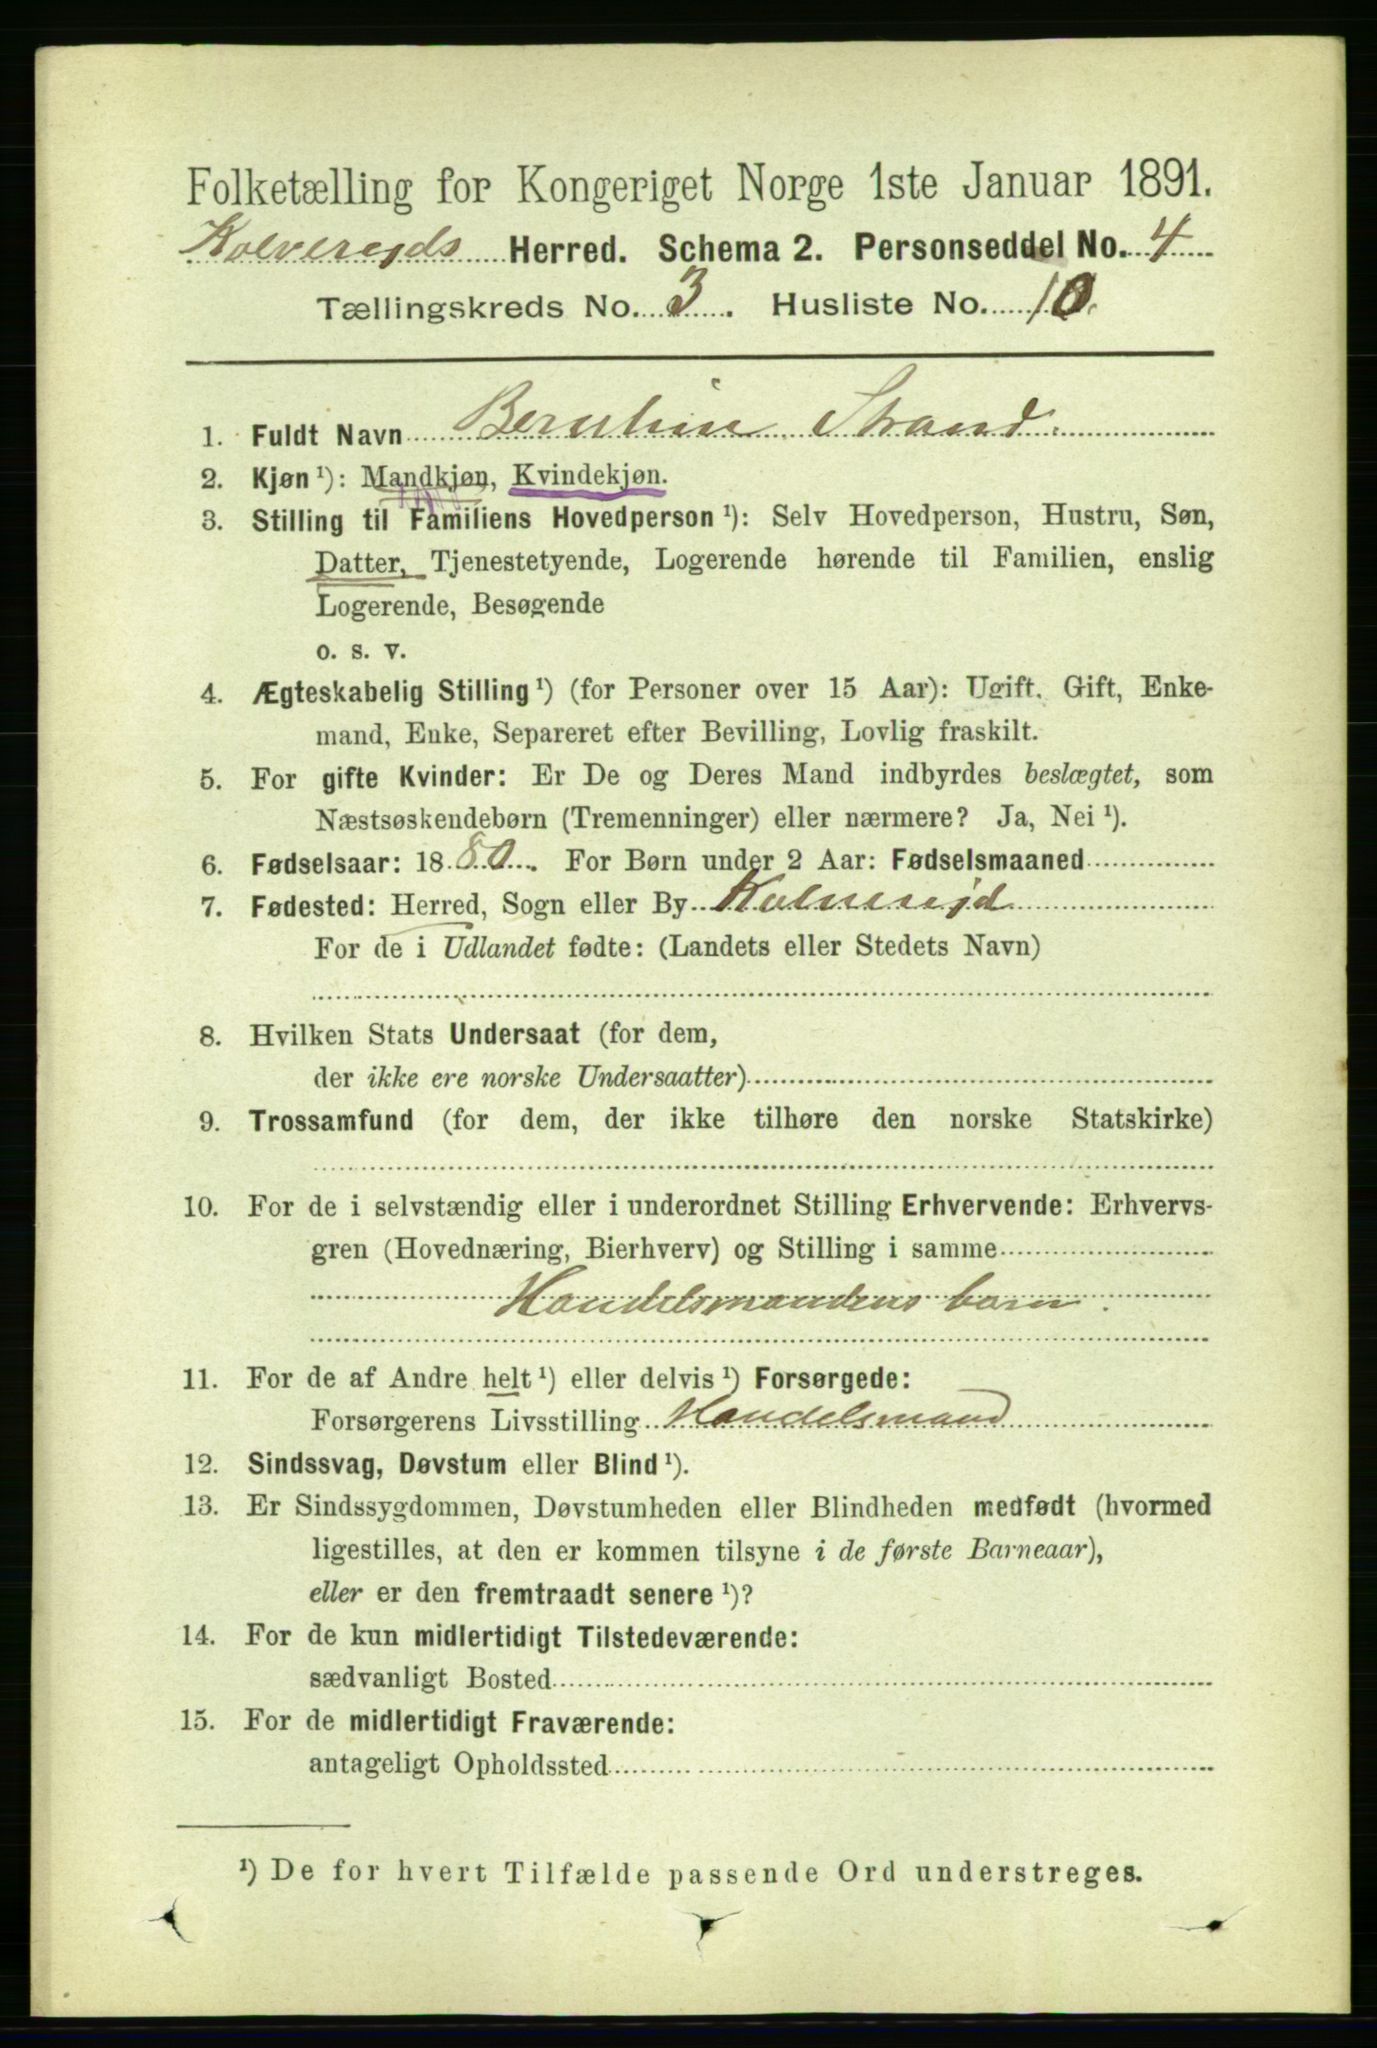 Folketælling for Kongeriget Norge 1ste Januar 1891.
Kolvereids Herred. Schema 2. Personseddel No. 4
Tællingskreds No. 3. Husliste No. 10.
1. Fuldt Navn Bernthine Strand.
2. Kjøn ¹): Mandkjøn, Kvindekjøn.
3. Stilling til Familiens Hovedperson ¹): Selv Hovedperson, Hustru, Søn,
Datter, Tjenestetyende, Logerende hørende til Familien, enslig
Logerende, Besøgende
o. s. v.
4. Ægteskabelig Stilling ¹) (for Personer over 15 Aar): Ugift. Gift, Enke-
mand, Enke, Separeret efter Bevilling, Lovlig fraskilt.
5. For gifte Kvinder: Er De og Deres Mand indbyrdes beslægtet, som
Næstsøskendebørn (Tremenninger) eller nærmere? Ja, Nei ¹).
6. Fødselsaar: 1880. For Børn under 2 Aar: Fødselsmaaned
7. Fødested: Herred, Sogn eller By Kolvereid
For de i Udlandet fødte: (Landets eller Stedets Navn)
8. Hvilken Stats Undersaat (for dem,
der ikke ere norske Undersaatter)
9. Trossamfund (for dem, der ikke tilhøre den norske Statskirke)
10. For de i selvstændig eller i underordnet Stilling Erhvervende: Erhvervs-
gren (Hovednæring, Bierhverv) og Stilling i samme
Handelsmandens barn.
11. For de af Andre helt ¹) eller delvis ¹) Forsørgede:
Forsørgerens Livsstilling Handelsmand
12. Sindssvag, Døvstum eller Blind ¹).
13. Er Sindssygdommen, Døvstumheden eller Blindheden medfødt (hvormed
ligestilles, at den er kommen tilsyne i de første Barneaar),
eller er den fremtraadt senere ¹)?
14. For de kun midlertidigt Tilstedeværende:
sædvanligt Bosted
15. For de midlertidigt Fraværende:
antageligt Opholdssted
¹) De for hvert Tilfælde passende Ord understreges.